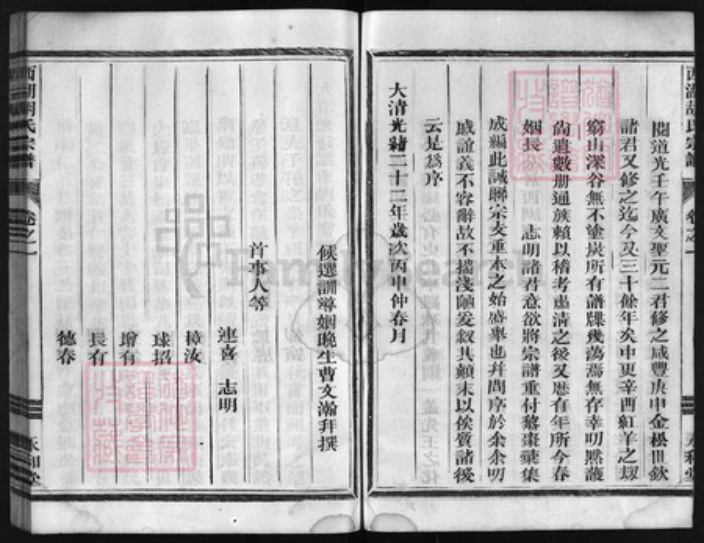 閱道光壬午廣文聖元二君修之咸豐庚申金松世欽
諸君又修之迄今又三十餘年矣中更辛酉紅羊之刼
窮山深谷無不塗炭所有譜牒幾蕩焉無存幸叨默護
尚遺數册通族賴以稽考肅清之後又歷有年所今春
姻長 志明諸君意欲將宗譜重付棃棗彙集
成編此誠聯宗支重本之始盛舉也幷問序於余余叨
戚誼義不容辭故不揣淺陋爰叙其顛末以俟質諸後
云是爲序
大清光緒二十二年歲次丙申仲春月
候選訓導姻晚生曹文瀚拜撰
首事人等
連喜 志明
樟汝
球招
增有
長有
德春
西湖胡氏宗譜 卷之一
永和堂
FamilySearch